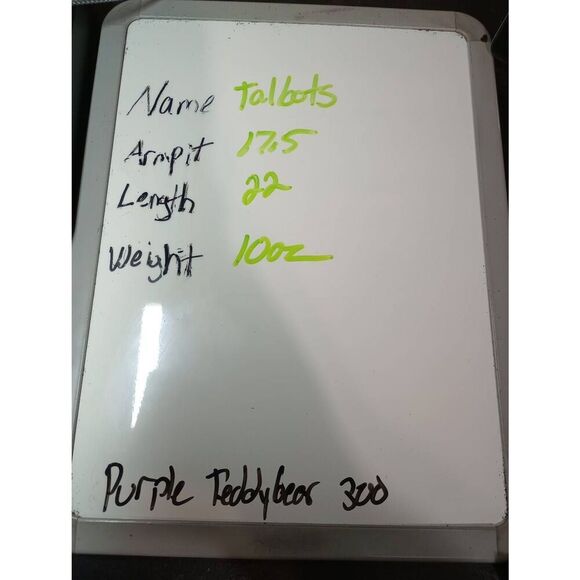 Name Talbots
Armpit 17.5
Length 22
Weight 10oz
Purple Teddybear 300